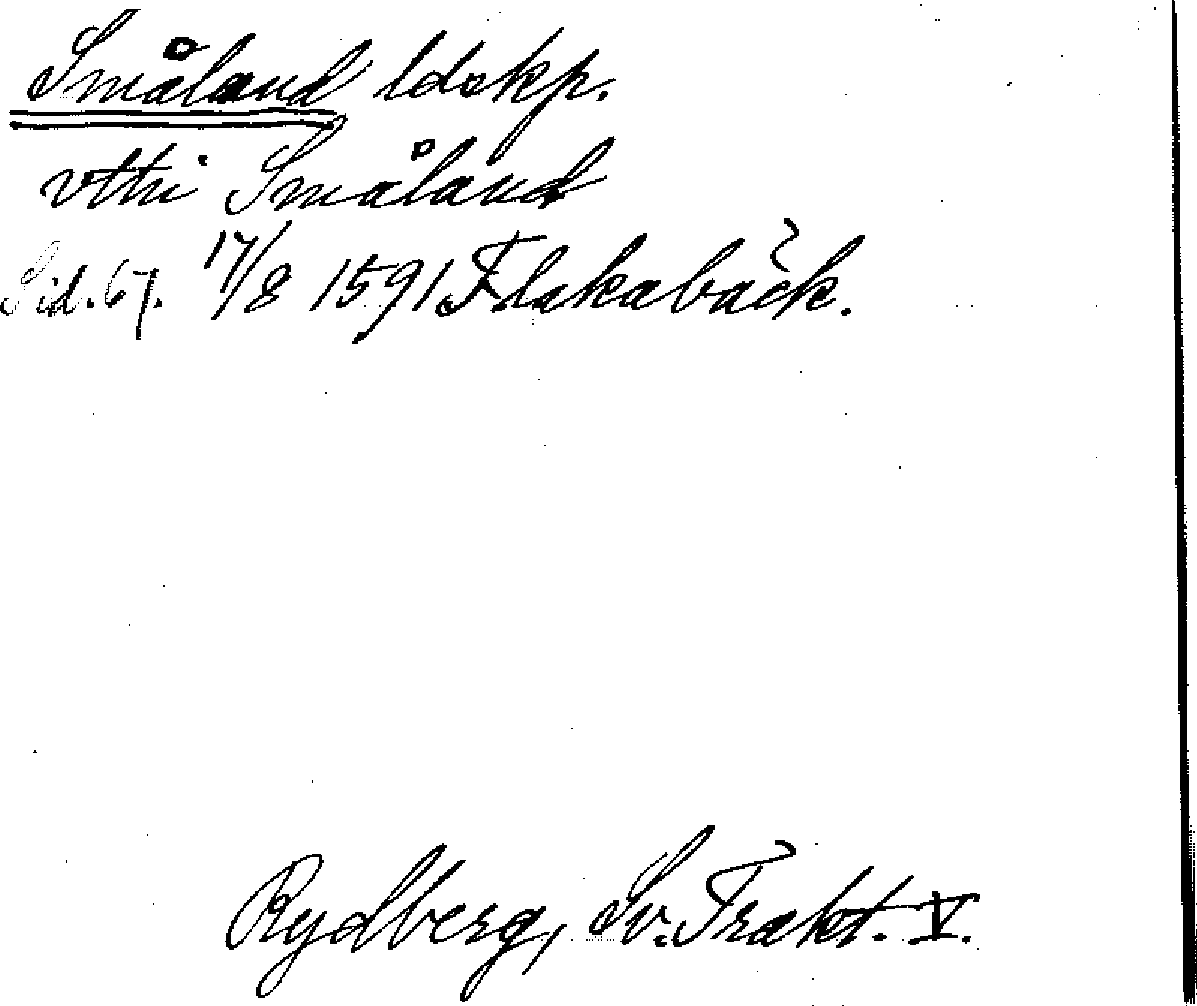 Småland ldskp.
vthi Småland
Sid. 67. 17/8 1591 Flakabäck.
Rydberg, Sv. Trakt. V.